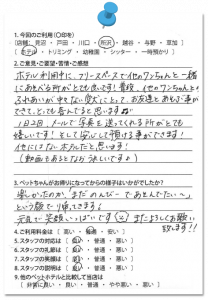 1.今回のご利用(○印を)
[店舗: 見沼 ・ 戸田 ・ 川口 ・ 所沢 ・ 越谷 ・ 与野 ・ 草加 ]
[ ホテル ・ トリミング ・ 幼稚園 ・ シッター ・ 一時預かり ]
2.ご意見・ご要望・苦情・ご感想
ホテル利用中に、フリースペースで他のワンちゃんと一緒
にあそんる所がとても良いです! 普段、他のワンちゃんと
ふれあいが少ない愛犬にとって、お友達とあそぶ事が
できて、とても喜んでると思います。
1日2回、メールで写真を送ってくれる所がとても
嬉しいです! そして、安心して預ける事ができます!
他にはないホテルだと思います!
(動画もあるとなおうれしいですね)
3.ペットちゃんがお帰りになってからの様子はいかがでしたか?
楽しかったのか、「まだのんびーであそんでたい~~」
という顔で帰ってきます!
元気で笑顔いっぱいです またよろしくお願い
致します!!
4.ご利用料金は [ 高い ・ 普通 ・ 安い ]
5.スタッフの対応は [ 良い ・ 普通 ・ 悪い ]
6.スタッフの礼節は [ 良い ・ 普通 ・ 悪い ]
7.スタッフの笑顔は [ 良い ・ 普通 ・ 悪い ]
8.スタッフの説明は [ 良い ・ 普通 ・ 悪い ]
9.他のペットホテルと比較して当店は
[ 非常に良い ・ 良い ・ 普通 ・ やや悪い ・ 悪い ]